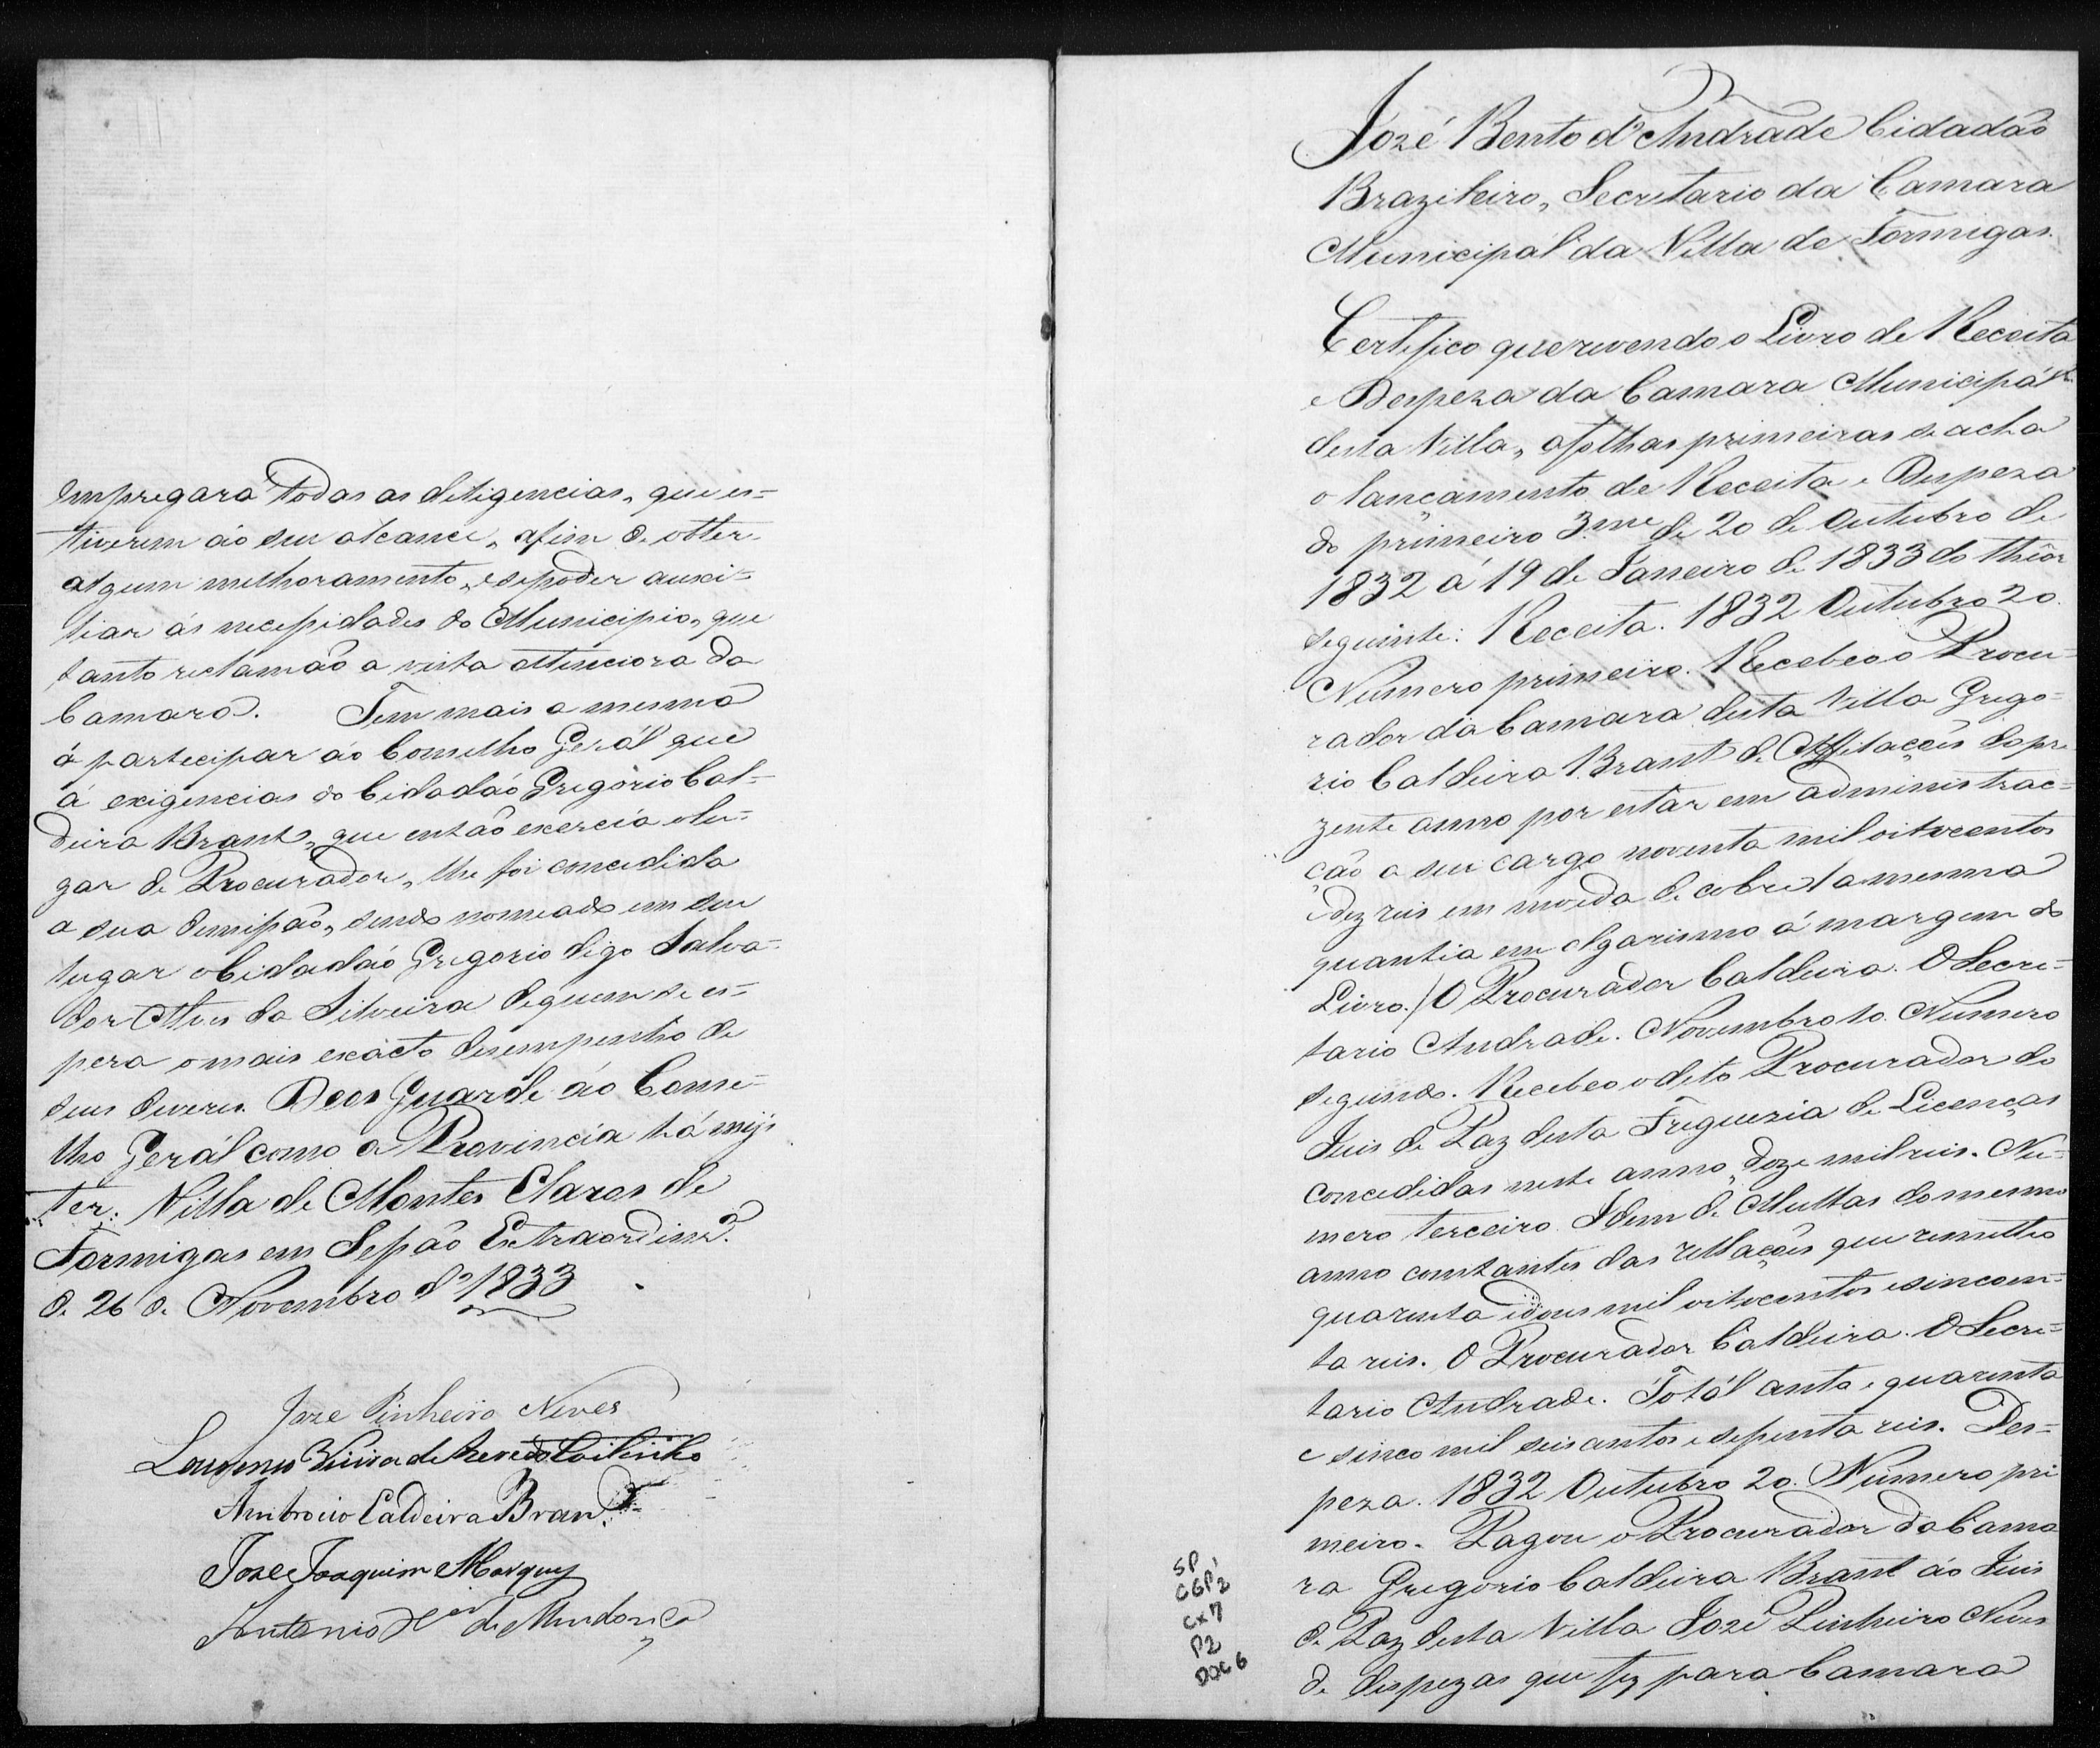 Empregará todas as deligencias, que es=
tiverem áo seu alcance, afim de obter
algum melhoramento, e se poder auxi=
liar ás necessidades do Municipio, que
tanto reclamão a vista attenciosa da
Camara. Tem mais a mesma
á partecipar áo Conselho Gerál que
á exigencias do Cidadáo Gregorio Cal=
deira Brant, que então exercia olu=
gar de Procurador, lhe foi concedida
a sua demissão, sendo nomeado em seu
lugar o Cidadáo Gregorio digo Salva=
dor Alves da Silveira dequem se es=
pera omais exácto desempenho de
seus deveres. Deos Guarde áo Conse=
lho Gerál como a Provincia há mis
ter. Villa de Montes Claros de
Formigas em Sessão Extraordinr.ª
de 26 de Novembro d'1833
Joze Pinheiro Neves
Lourenço Vieira de Azeredo Coitinho
Ambrocio Caldeira Brant
Joze Joaquim Marques
Antonio X.er de Mendonça
José Bento d'Andrade Cidadão
Brazileiro, Secretario da Camara
Municipal da Villa de Formigas.
Certefico que revendo o Livro de Receita
e Despeza da Camara Municipál
desta Villa, afolhas primeiras se acha
o lançamento de Receita e Despeza
do primeiro 3.me de 20 de Outubro de
1832 á 19 de Janeiro de 1833 do theôr
seguinte: Receita. 1832 Outubro 20.
Numero primeiro. Recebeo o Procu=
rador da Camara desta Villa Grego=
rio Caldeira Brant de Affilações do pre
zente anno por estar em administrac=
ção a seu cargo noventa mil oitocentos
e dez reis em moeda de cobre / a mesma
quantia em algarismo á margem do
Livro. / O Procurador Caldeira. O Secre=
tario Andrade. Novembro 10. Numero
segundo. Recebeo odito Procurador do
Juis de Paz desta Freguezia de Licenças
concedidas neste anno, doze mil reis. Nu=
mero terceiro. Idem de Multas do mesmo
anno constantes das rellações que remetteo
quarenta e dous mil oitocentos e sincoen=
ta reis. O Procurador Caldeira. O Secre=
tario Andrade. Totál cento e quarenta
e sinco mil seis centos e sessenta reis. Des=
peza. 1832 Outubro 20. Numero pri
meiro. Pagou o Procurador da Cama
ra Gregorio Caldeira Brant áo Juis
de Paz desta Villa José Pinheiro Neves
de despezas que fez para Camara
SP
CGP1
CX7
P2
DOC 6